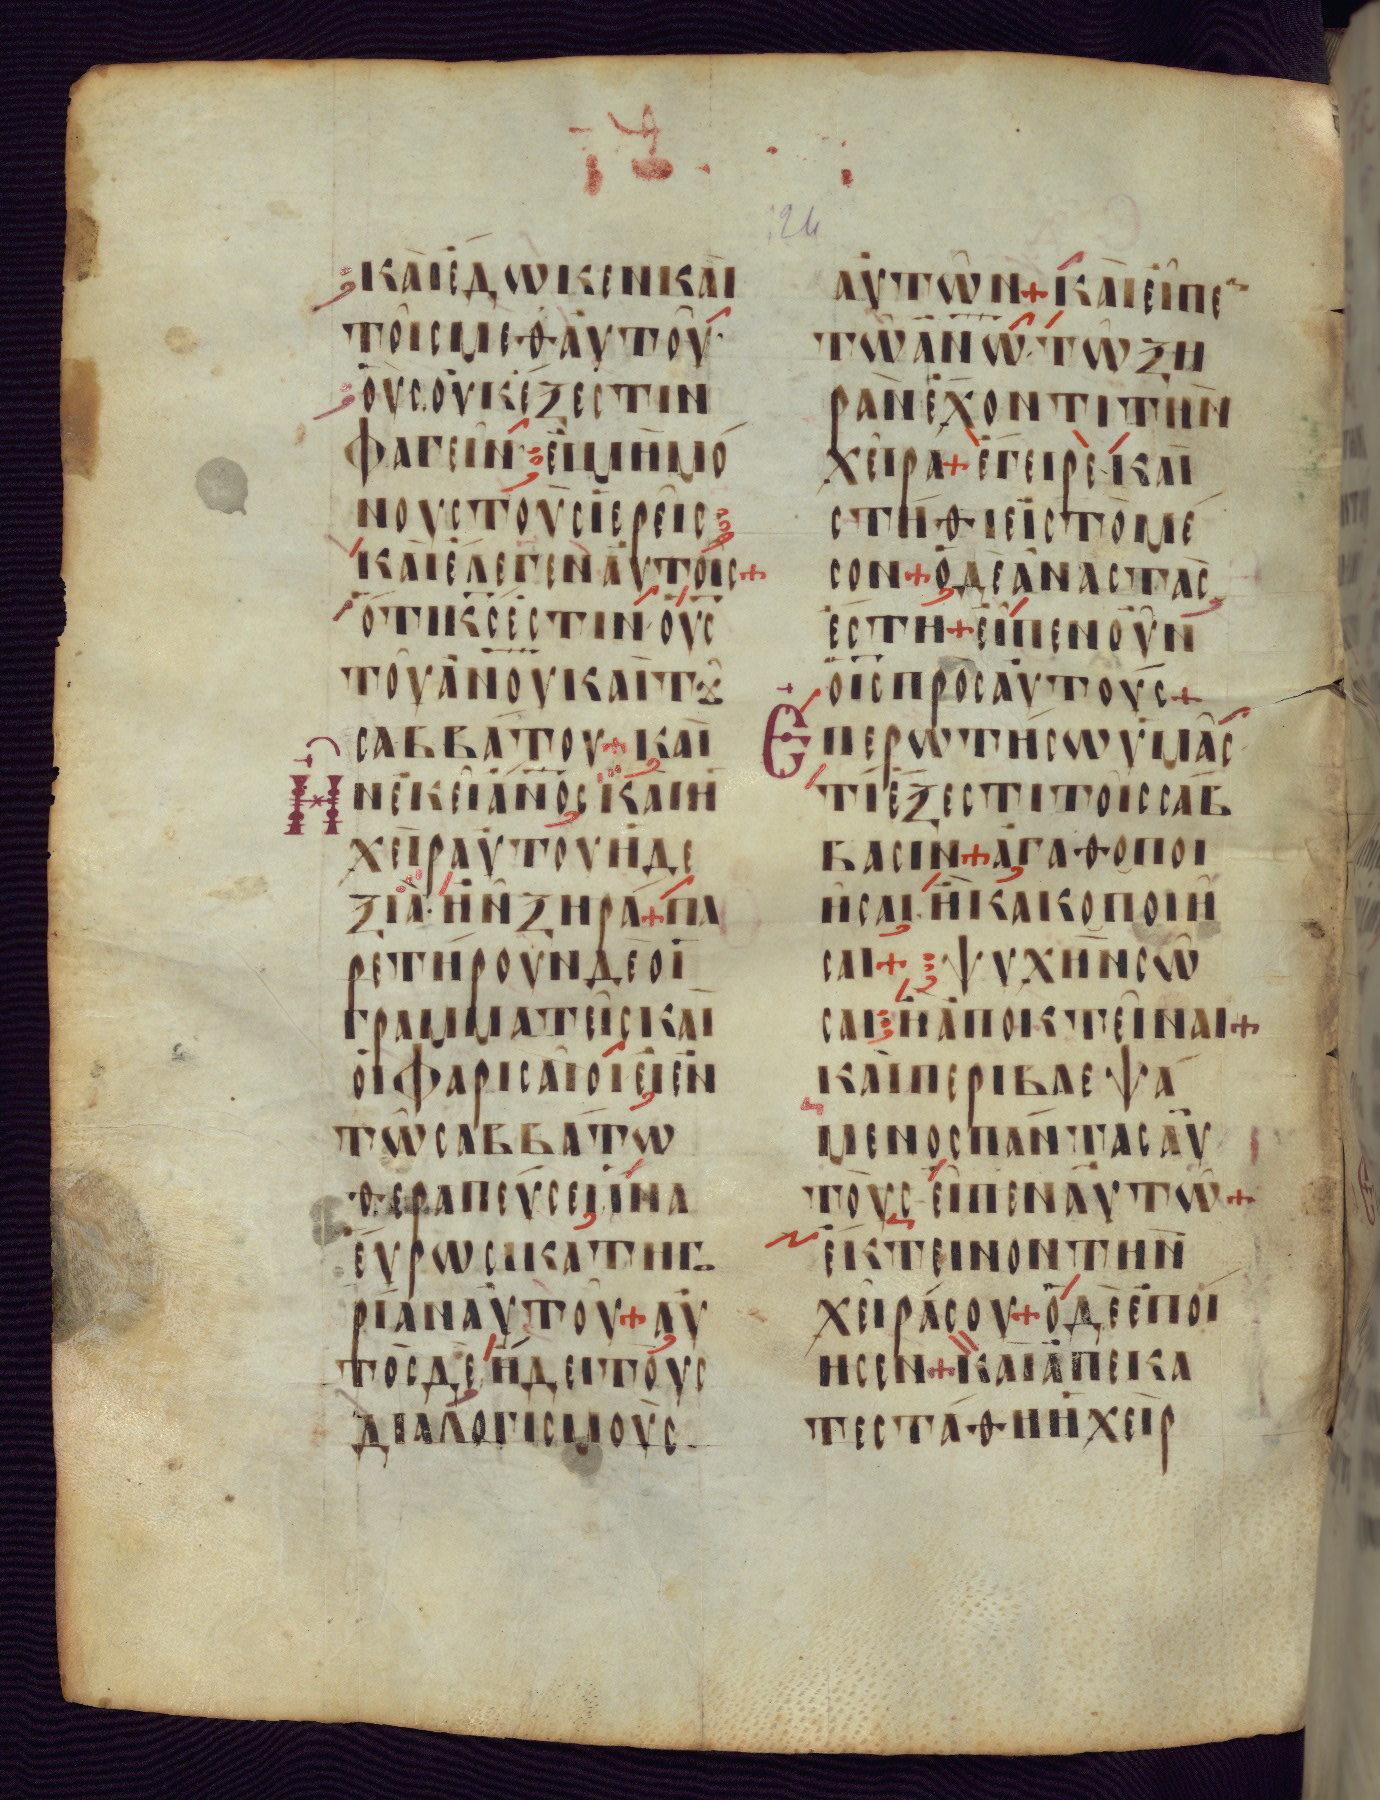 124
καὶ ἔδωκεν καὶ
τοῖς μεθ αὐτοῦ·
οὓς οὐκ ἔξεστιν
φαγεῖν εἰ μὴ μό
νους τοὺς ἱερεῖς
καὶ ἔλεγεν αὐτοῖς+
ὅτι κς ἐστιν ὁ υς
τοῦ ανου καὶ τȣ
σαββάτου+ καὶ
ἦν ἐκεῖ ανος καὶ ἡ
χεὶρ αὐτου ἡ δε
ξιὰ· ἦν ξηρὰ+ πα
ρετήρουν δὲ οἱ
γραμματεῖς καὶ
οἱ φαρισαῖοι εἰ ἐν
τῶ σαββάτω
θεραπεύσει ἵνα
εὕρωσι κατηγο
ρίαν αὐτοῦ+ αὐ
τὸς δὲ ἤδει τοὺς
διαλογισμοὺς
αὐτῶν+ καὶ εἶπε
τῶ ανω· τῶ ξη
ρὰν ἔχοντι τὴν
χεῖρα+ ἔγειρε· καὶ
στῆθι εἰς τὸ μέ
σον+ ὁ δὲ ἀναστὰς
ἔστη+ εἶπεν οὖν
ὁ ις πρὸς αὐτούς+
Ἐπερωτήσω ὑμᾶς
τί ἔξεστι τοῖς σάβ
βασιν+ ἀγαθοποι
ῆσαι· ἢ κακοποιῆ
σαι+ ψυχὴν σῶ
σαι ἢ ἀποκτεῖναι+
καὶ περιβλεψά
μενος πάντας αὐ
τοὺς· εἶπεν αὐτῶ+
ἔκτεινον τὴν
χεῖρά σου+ ὁ δὲ ἐποί
ησεν+ καὶ ἀπεκα
τεστάθη ἡ χεὶρ